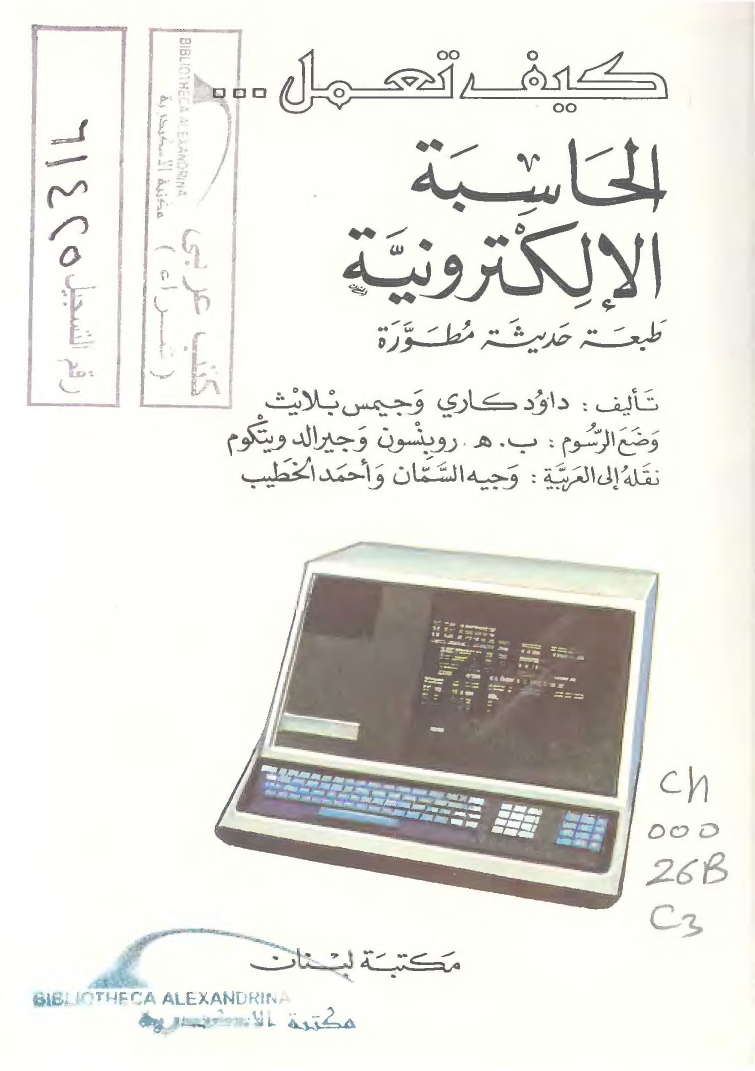 كيف تعمل ...
الحَاسِبَة
الإِلِكْترونيَّة
طبعَة حَديثَة مُطوَّرَة
تَأليف : داوُد كاري وَجيمس بْلايْث
وَضَعَ الرُّسُوم : ب. هـ. روبِنْسون وَجيرالد ويتْكوم
نقَلهُ إلى العَرَبيَّة : وَجيه السَّمَّان وَأحمَد الخَطيب
مَكتبَة لبْنان
BIBLIOTHECA ALEXANDRINA
مكتبة الاسكندرية
رقم التسجيل ٦١٤٢٥
BIBLIOTHECA ALEXANDRINA
مكتبة الاسكندرية
كتب عربى
( شراء )
Ch
000
26B
C3